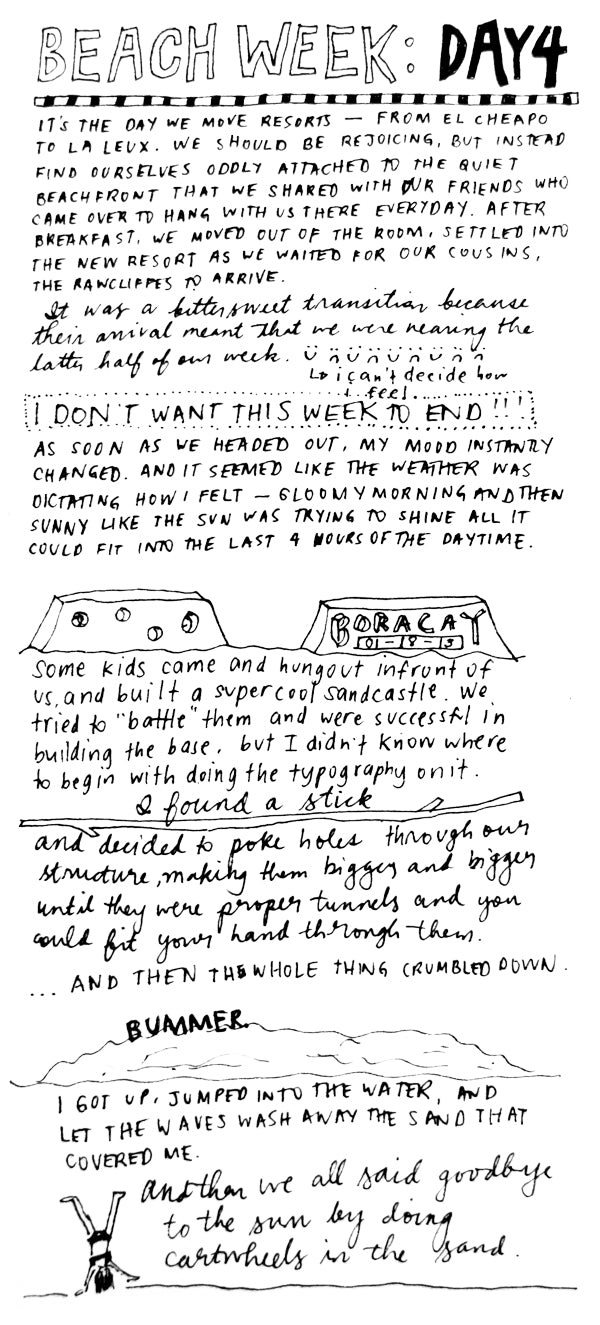 BEACH WEEK: DAY 4
IT'S THE DAY WE MOVE RESORTS — FROM EL CHEAPO
TO LA LEUX. WE SHOULD BE REJOICING, BUT INSTEAD
FIND OURSELVES ODDLY ATTACHED TO THE QUIET
BEACHFRONT THAT WE SHARED WITH OUR FRIENDS WHO
CAME OVER TO HANG WITH US THERE EVERYDAY. AFTER
BREAKFAST, WE MOVED OUT OF THE ROOM, SETTLED INTO
THE NEW RESORT AS WE WAITED FOR OUR COUSINS,
THE RAWCLIFFES TO ARRIVE.
It was a bittersweet transition because
their arrival meant that we were nearing the
latter half of our week.
↳ i can't decide how
i feel......
I DON'T WANT THIS WEEK TO END!!!
AS SOON AS WE HEADED OUT, MY MOOD INSTANTLY
CHANGED. AND IT SEEMED LIKE THE WEATHER WAS
DICTATING HOW I FELT — GLOOMY MORNING AND THEN
SUNNY LIKE THE SUN WAS TRYING TO SHINE ALL IT
COULD FIT INTO THE LAST 4 HOURS OF THE DAYTIME.
BORACAY
01-18-13
some kids came and hungout infront of
us, and built a supercool sandcastle. We
tried to "battle" them and were successful in
building the base, but I didn't know where
to begin with doing the typography on it.
I found a stick
and decided to poke holes through our
structure, making them bigger and bigger
until they were proper tunnels and you
could fit your hand through them.
... AND THEN THE WHOLE THING CRUMBLED DOWN.
BUMMER.
I GOT UP, JUMPED INTO THE WATER, AND
LET THE WAVES WASH AWAY THE SAND THAT
COVERED ME.
and then we all said goodbye
to the sun by doing
cartwheels in the sand.